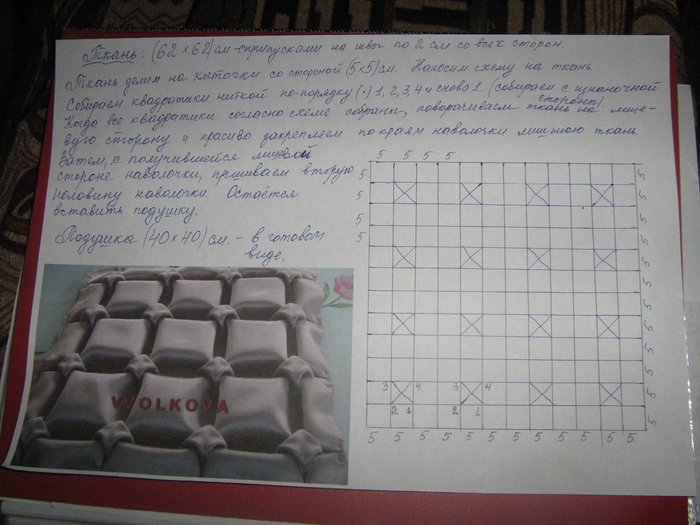 Ткань: (62×62) см - с припусками на швы по 2 см со всех сторон.
Ткань делим на клеточки со стороной (5×5) см. Наносим схему на ткань
Собираем квадратики ниткой по-порядку (•) 1, 2, 3, 4 и снова 1 (собираем с изнаночной стороны).
Когда все квадратики согласно схеме собраны, поворачиваем ткань на лице-
вую сторону и красиво закрепляем по краям наволочки лишнюю ткань.
Затем, к получившейся лицевой
стороне наволочки, пришиваем вторую
половину наволочки. Остаётся
вставить подушку.
Подушка (40×40) см. - в готовом
виде.
VVOLKOVA
5 5 5 5
5
5
5
5
3 4 3 4
2 1 2 1
5 5 5 5 5 5 5 5 5 5 5 5
5
5
5
5
5
5
5
5
5
5
5
5